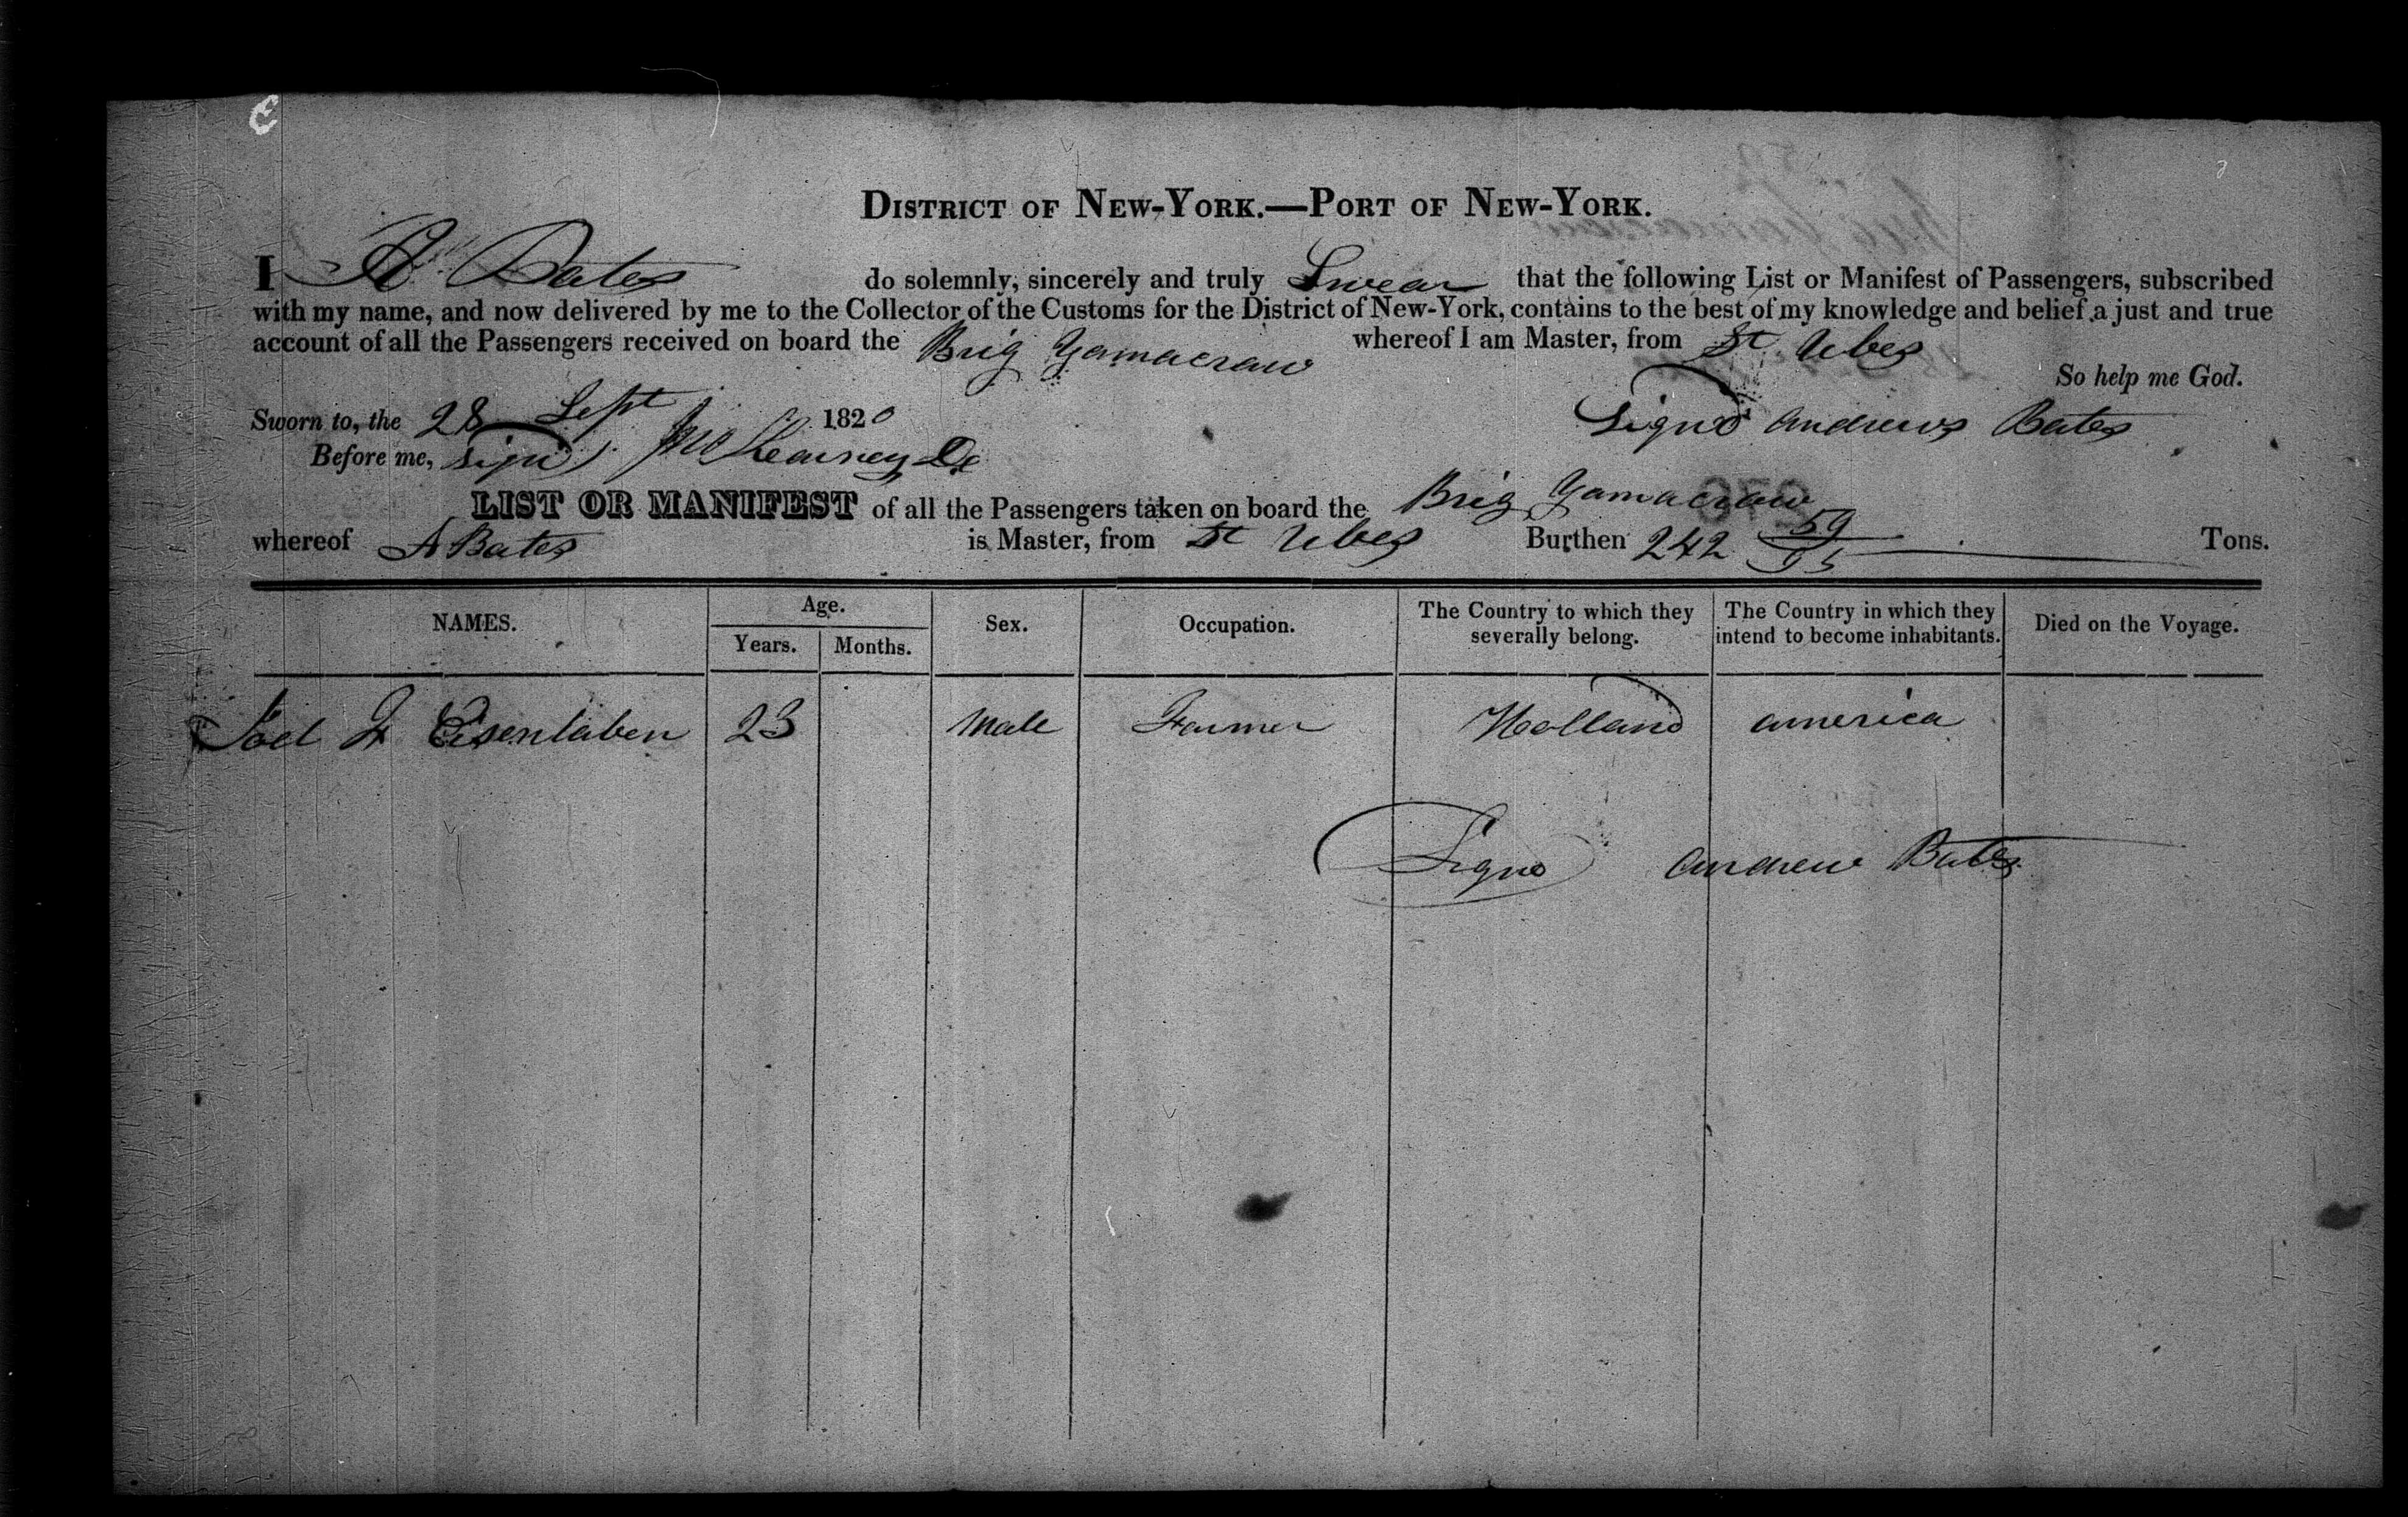 DISTRICT OF NEW-YORK.—PORT OF NEW-YORK.
I A Bates do solemnly, sincerely and truly Swear that the following List or Manifest of Passengers, subscribed
with my name, and now delivered by me to the Collector of the Customs for the District of New-York, contains to the best of my knowledge and belief a just and true
account of all the Passengers received on board the Brig Yamacraw whereof I am Master, from St Ubes
So help me God.
Sworn to, the 28 Sept 1820 Signd Andrews Bates
Before me, sign Jno Kearney
LIST OR MANIFEST of all the Passengers taken on board the Brig Yamacraw
whereof A Bates is Master, from St Ubes Burthen 242 59/95 Tons.
NAMES. Age. Years. Months. Sex. Occupation. The Country to which they severally belong. The Country in which they intend to become inhabitants. Died on the Voyage.
Eisenlaben 23 Male Farmer Holland america
Signd Andrew Bates